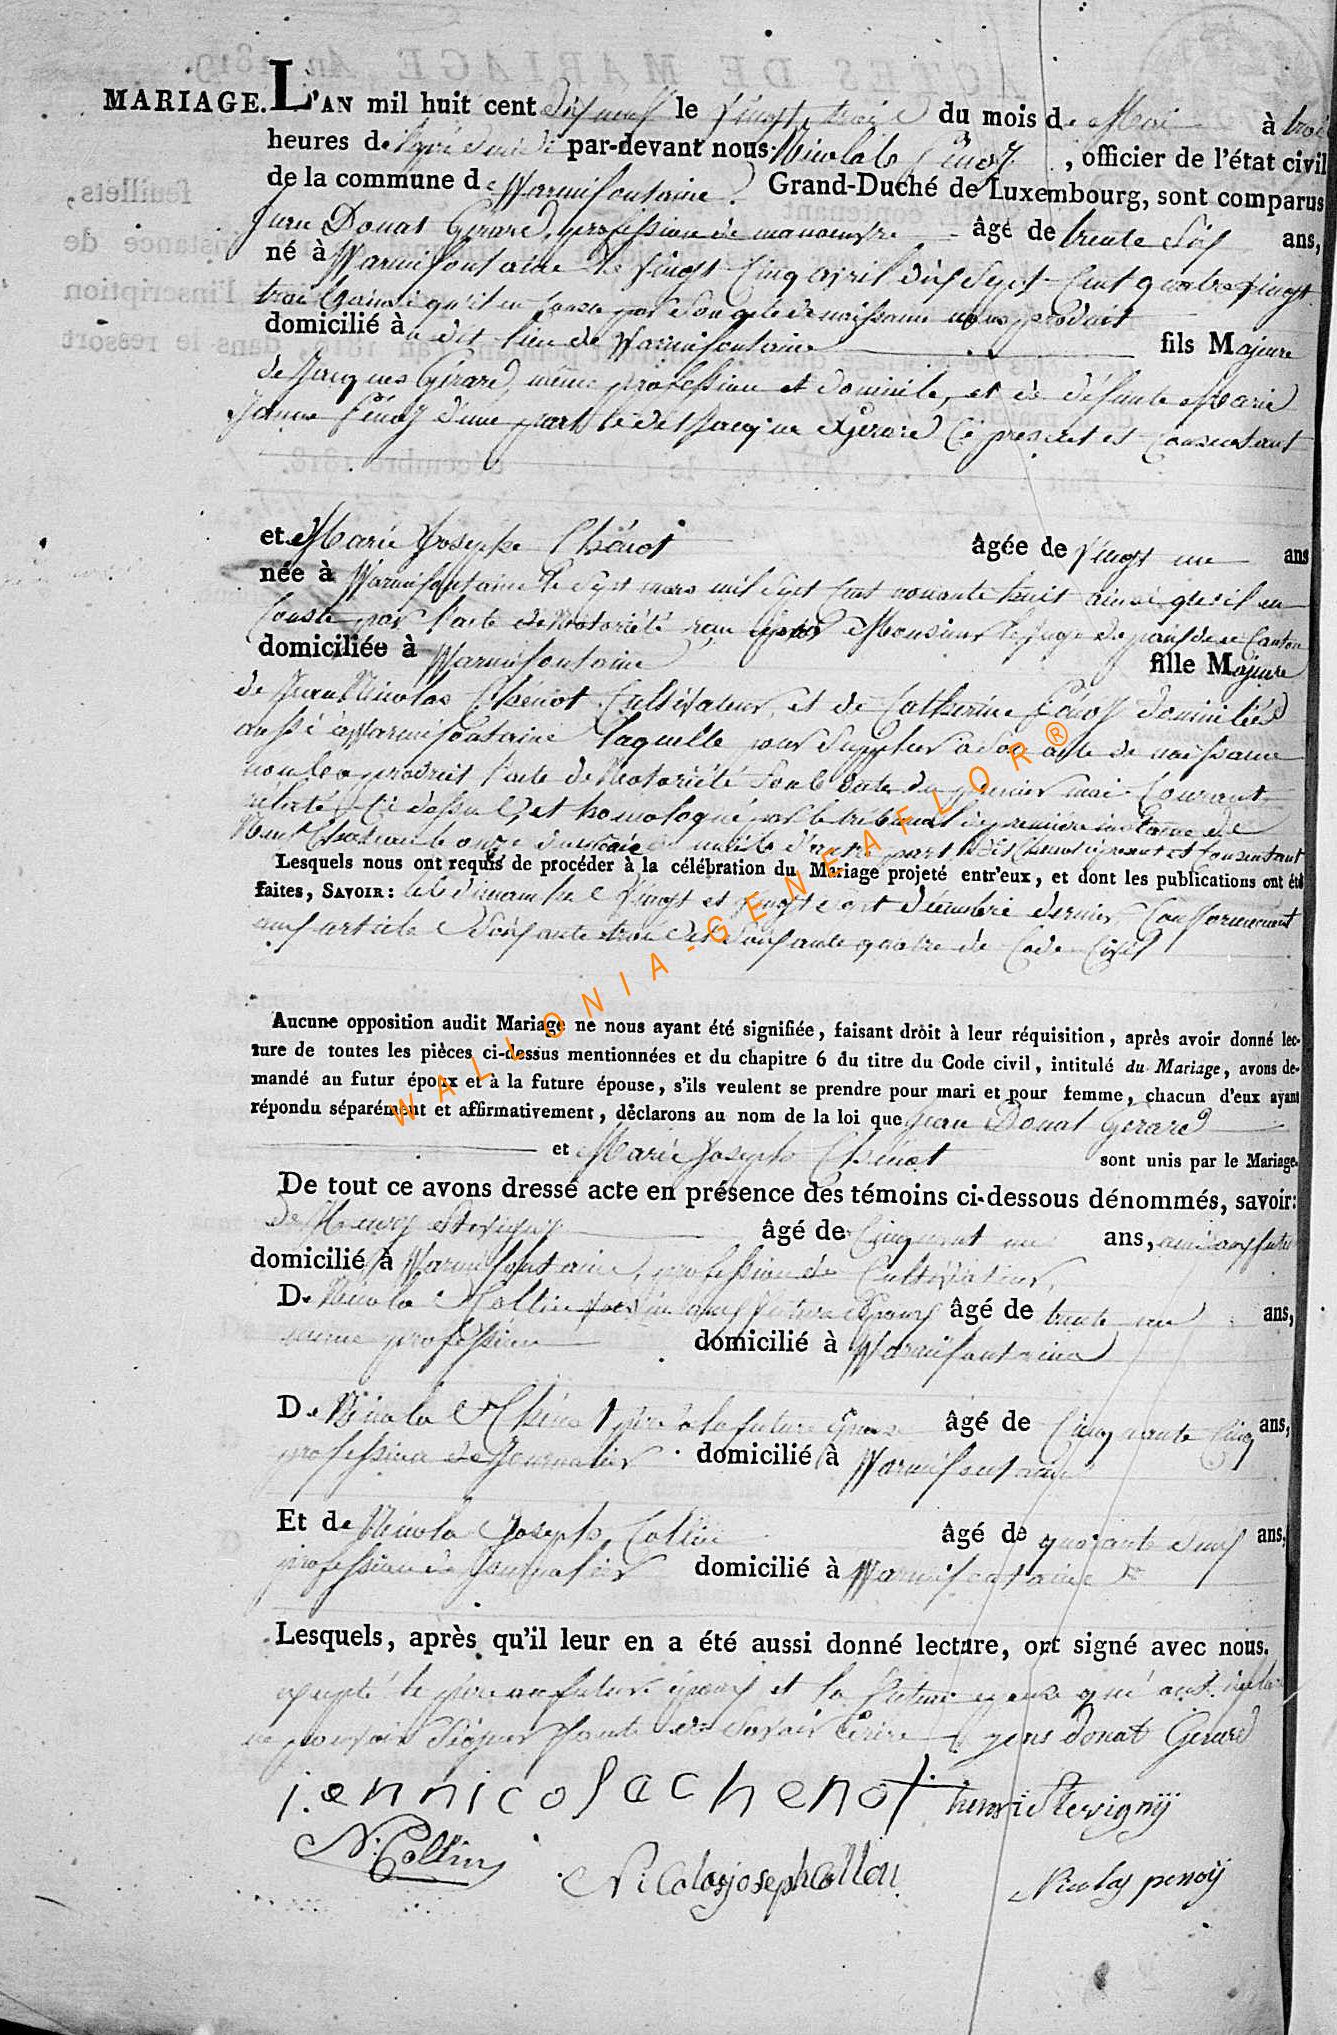 MARIAGE. L'AN mil huit cent dixneuf le vingt trois du mois de Mai à trois
heures de l'après midi par-devant nous Nicolas Penoÿ, officier de l'état civil
de la commune de Warmifontaine. Grand-Duché de Luxembourg, sont comparus
Jean Donat Gérard, profession de manoeuvre âgé de trente six ans,
né à Warmifontaine le vingt cinq avril dix sept cent quatre vingt
trois ainsi qu'il en conste par son acte de naissance nous produit
domicilié au dit lieu de Warmifontaine fils Majeure
de Jacques Gérard, même profession et domicile, et de défunte Marie
Jeanne Penoÿ d'une part le dit Jacque Gérard ici présent et consentant
et Marie Josephe Chénot âgée de vingt un ans
née à Warmifontaine le sept mars mil sept cent nonante huit ainsi qu'il en
conste par l'acte de Notoriété Monsieur le juge de paix de ce Canton
domiciliée à Warmifontaine fille Majeure
de Jean Nicolas Chénot Cultivateur, et de Catherine Penoÿ domiciliés
aussi à Warmifontaine laquelle pour suppléer à son acte de naissance
nous a produit l'acte de Notoriété sous la date du premier mai courant
relaté ci dessus et homologué par le tribunal de premiere instance de
Neufchateau le onze d'autre part le dit Chénot ici présent et consentant
Lesquels nous ont requis de procéder à la célébration du Mariage projeté entr'eux, et dont les publications ont été
faites, SAVOIR: les dimanche vingt et vingt sept décembre dernier conformement
aux article soixante trois et soixante quatre de Code Civil
Aucune opposition audit Mariage ne nous ayant été signifiée, faisant droit à leur réquisition, après avoir donné lec-
ture de toutes les pièces ci-dessus mentionnées et du chapitre 6 du titre du Code civil, intitulé du Mariage, avons de-
mandé au futur époux et à la future épouse, s'ils veulent se prendre pour mari et pour femme, chacun d'eux ayant
répondu séparément et affirmativement, déclarons au nom de la loi que Jean Donat Gérard
et Marie Josephe Chénot sont unis par le Mariage.
De tout ce avons dressé acte en présence des témoins ci-dessous dénommés, savoir:
De Henry Stevigny âgé de Cinquant un ans, ami aux futur
domicilié à Warmifontaine, profession de Cultivateur,
De Nicola Collin aux future Epoux âgé de trente un ans,
meme profession domicilié à Warmifontaine
De Nicola Chénot père à la future Epouse âgé de Cinquante Cinq ans,
profession de Journalier domicilié à Warmifontaine
Et de Nicola Joseph Collin âgé de quarante deux ans,
profession de Journalier domicilié à Warmifontaine
Lesquels, après qu'il leur en a été aussi donné lecture, ont signé avec nous.
excepté le père au futur époux et la future epouse qui ont déclaré
ne pouvoir Signer faute de Savoir écrire jens donat Gerard
jennicolachenot henri Stevignÿ
N: Collin Nicolasjosephcollen Nicolas penoÿ
WALLONIA-GENEAFLOR®